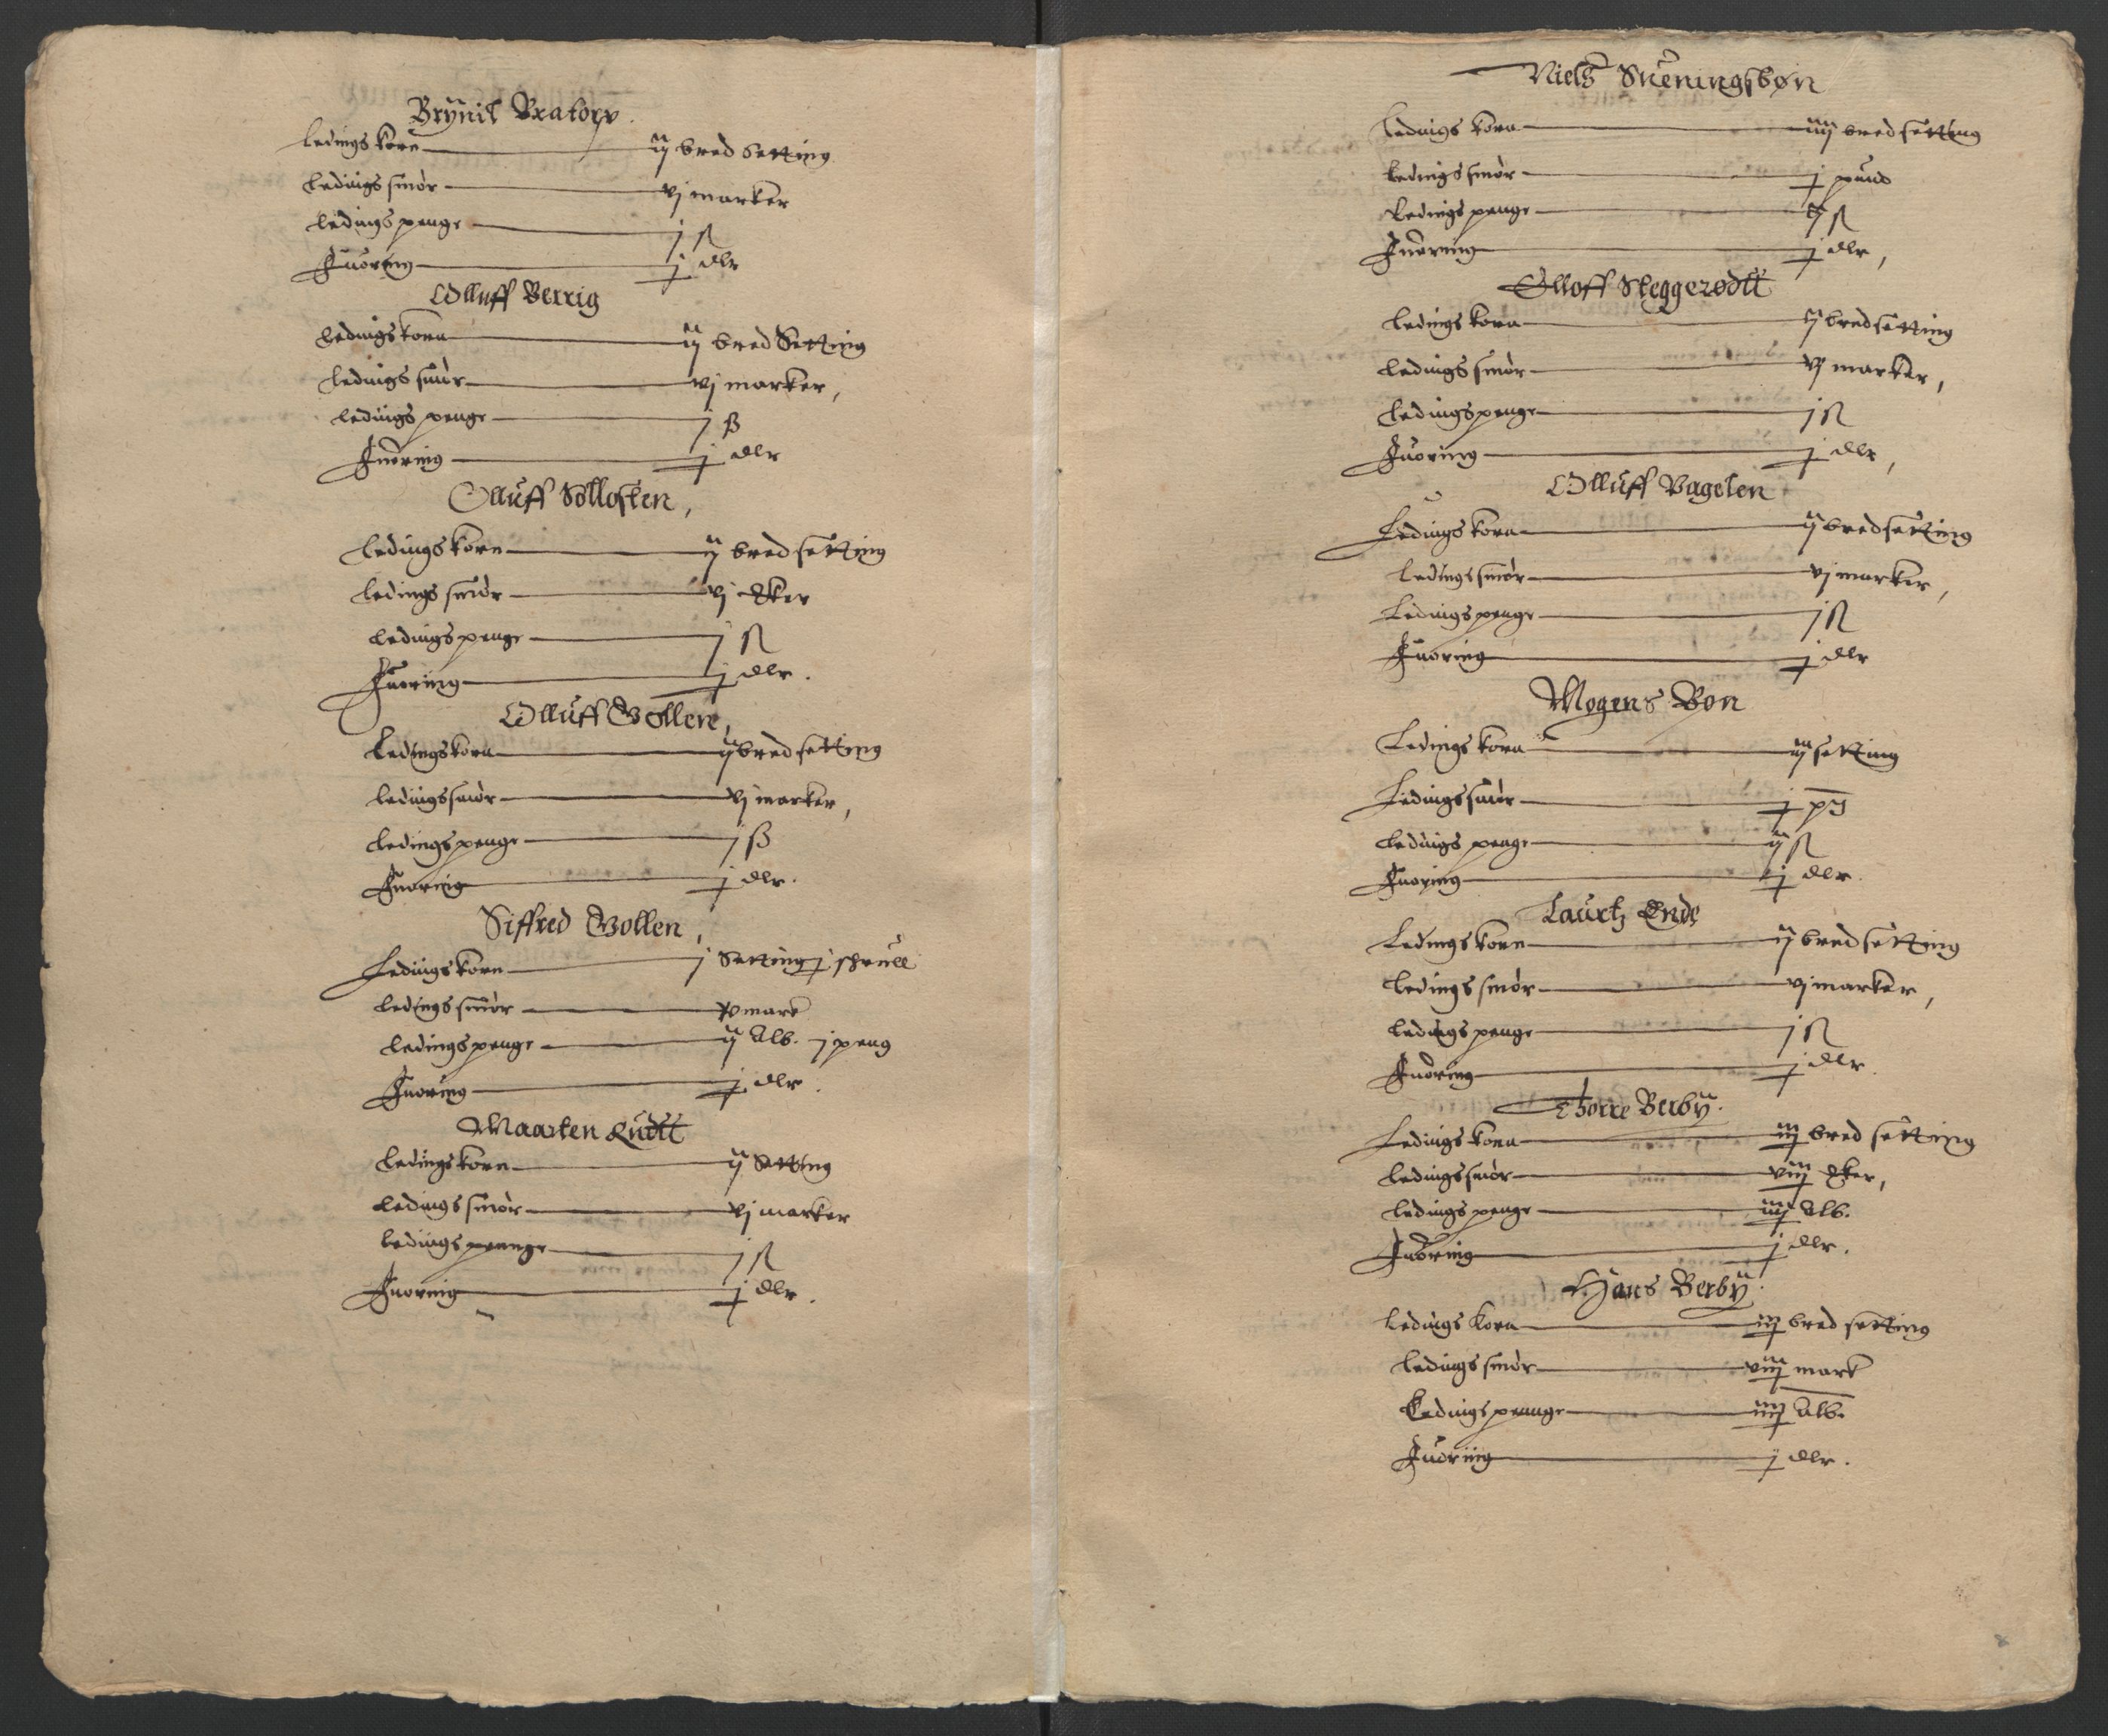 Brynil Bratorp.
ledings korn ij bred Setting
ledings smør vj marker
ledings penge j ß
Fuoring j dlr
Olluff Berrig
ledings korn ij bred Setting
ledings smør vj marker,
ledings penge j ß
Fuoring j dlr
Olluff Sollosten,
ledings korn ij bred setting
ledings smør vj mker
ledings penge j ß
Fuoring j dlr.
Olluff Bollere,
ledings korn ij bred setting
ledings smør vj marker,
ledings penge j ß
Fuoring j dlr.
Siffred Bollen,
ledings korn j Setting j schrull
ledings smør mark
ledings penge ij Alb. j peng
Fuoring j dlr.
Maarten Rudtt
ledings korn ij Setting
ledings smør vj marker
ledings pennge j ß
Fuoring j dlr.
Niels Sueningsbøn
ledings korn iiij bred setting
ledings smør j pund
ledings penge ij ß
Fuoring j dlr,
Olloff Sleggerødtt
ledings korn ij bred setting
ledings smør vj marker,
ledings penge j ß
Fuoring j dlr,
Olluff Bagelen
Ledings korn ij bred setting
ledings smør vj marker,
Ledings penge j ß
Fuoring j dlr
Mogens Bøn
Ledings korn iij setting
Ledings smør j pd
ledings penge ij ß
Fuoring j dlr.
Laurtz Ende
Ledings korn ij bred setting
ledings smør vj marker,
ledings penge j ß
Fuoring j dlr.
Thorre Berby.
Ledings korn iij bred setting
ledings smør viij mker,
ledings penge iiij Alb.
Fuoring j dlr.
Hans Berby.
ledings korn iij bred setting
ledings smør viij mark
Ledings pennge iiij Alb.
Fuoring j dlr.